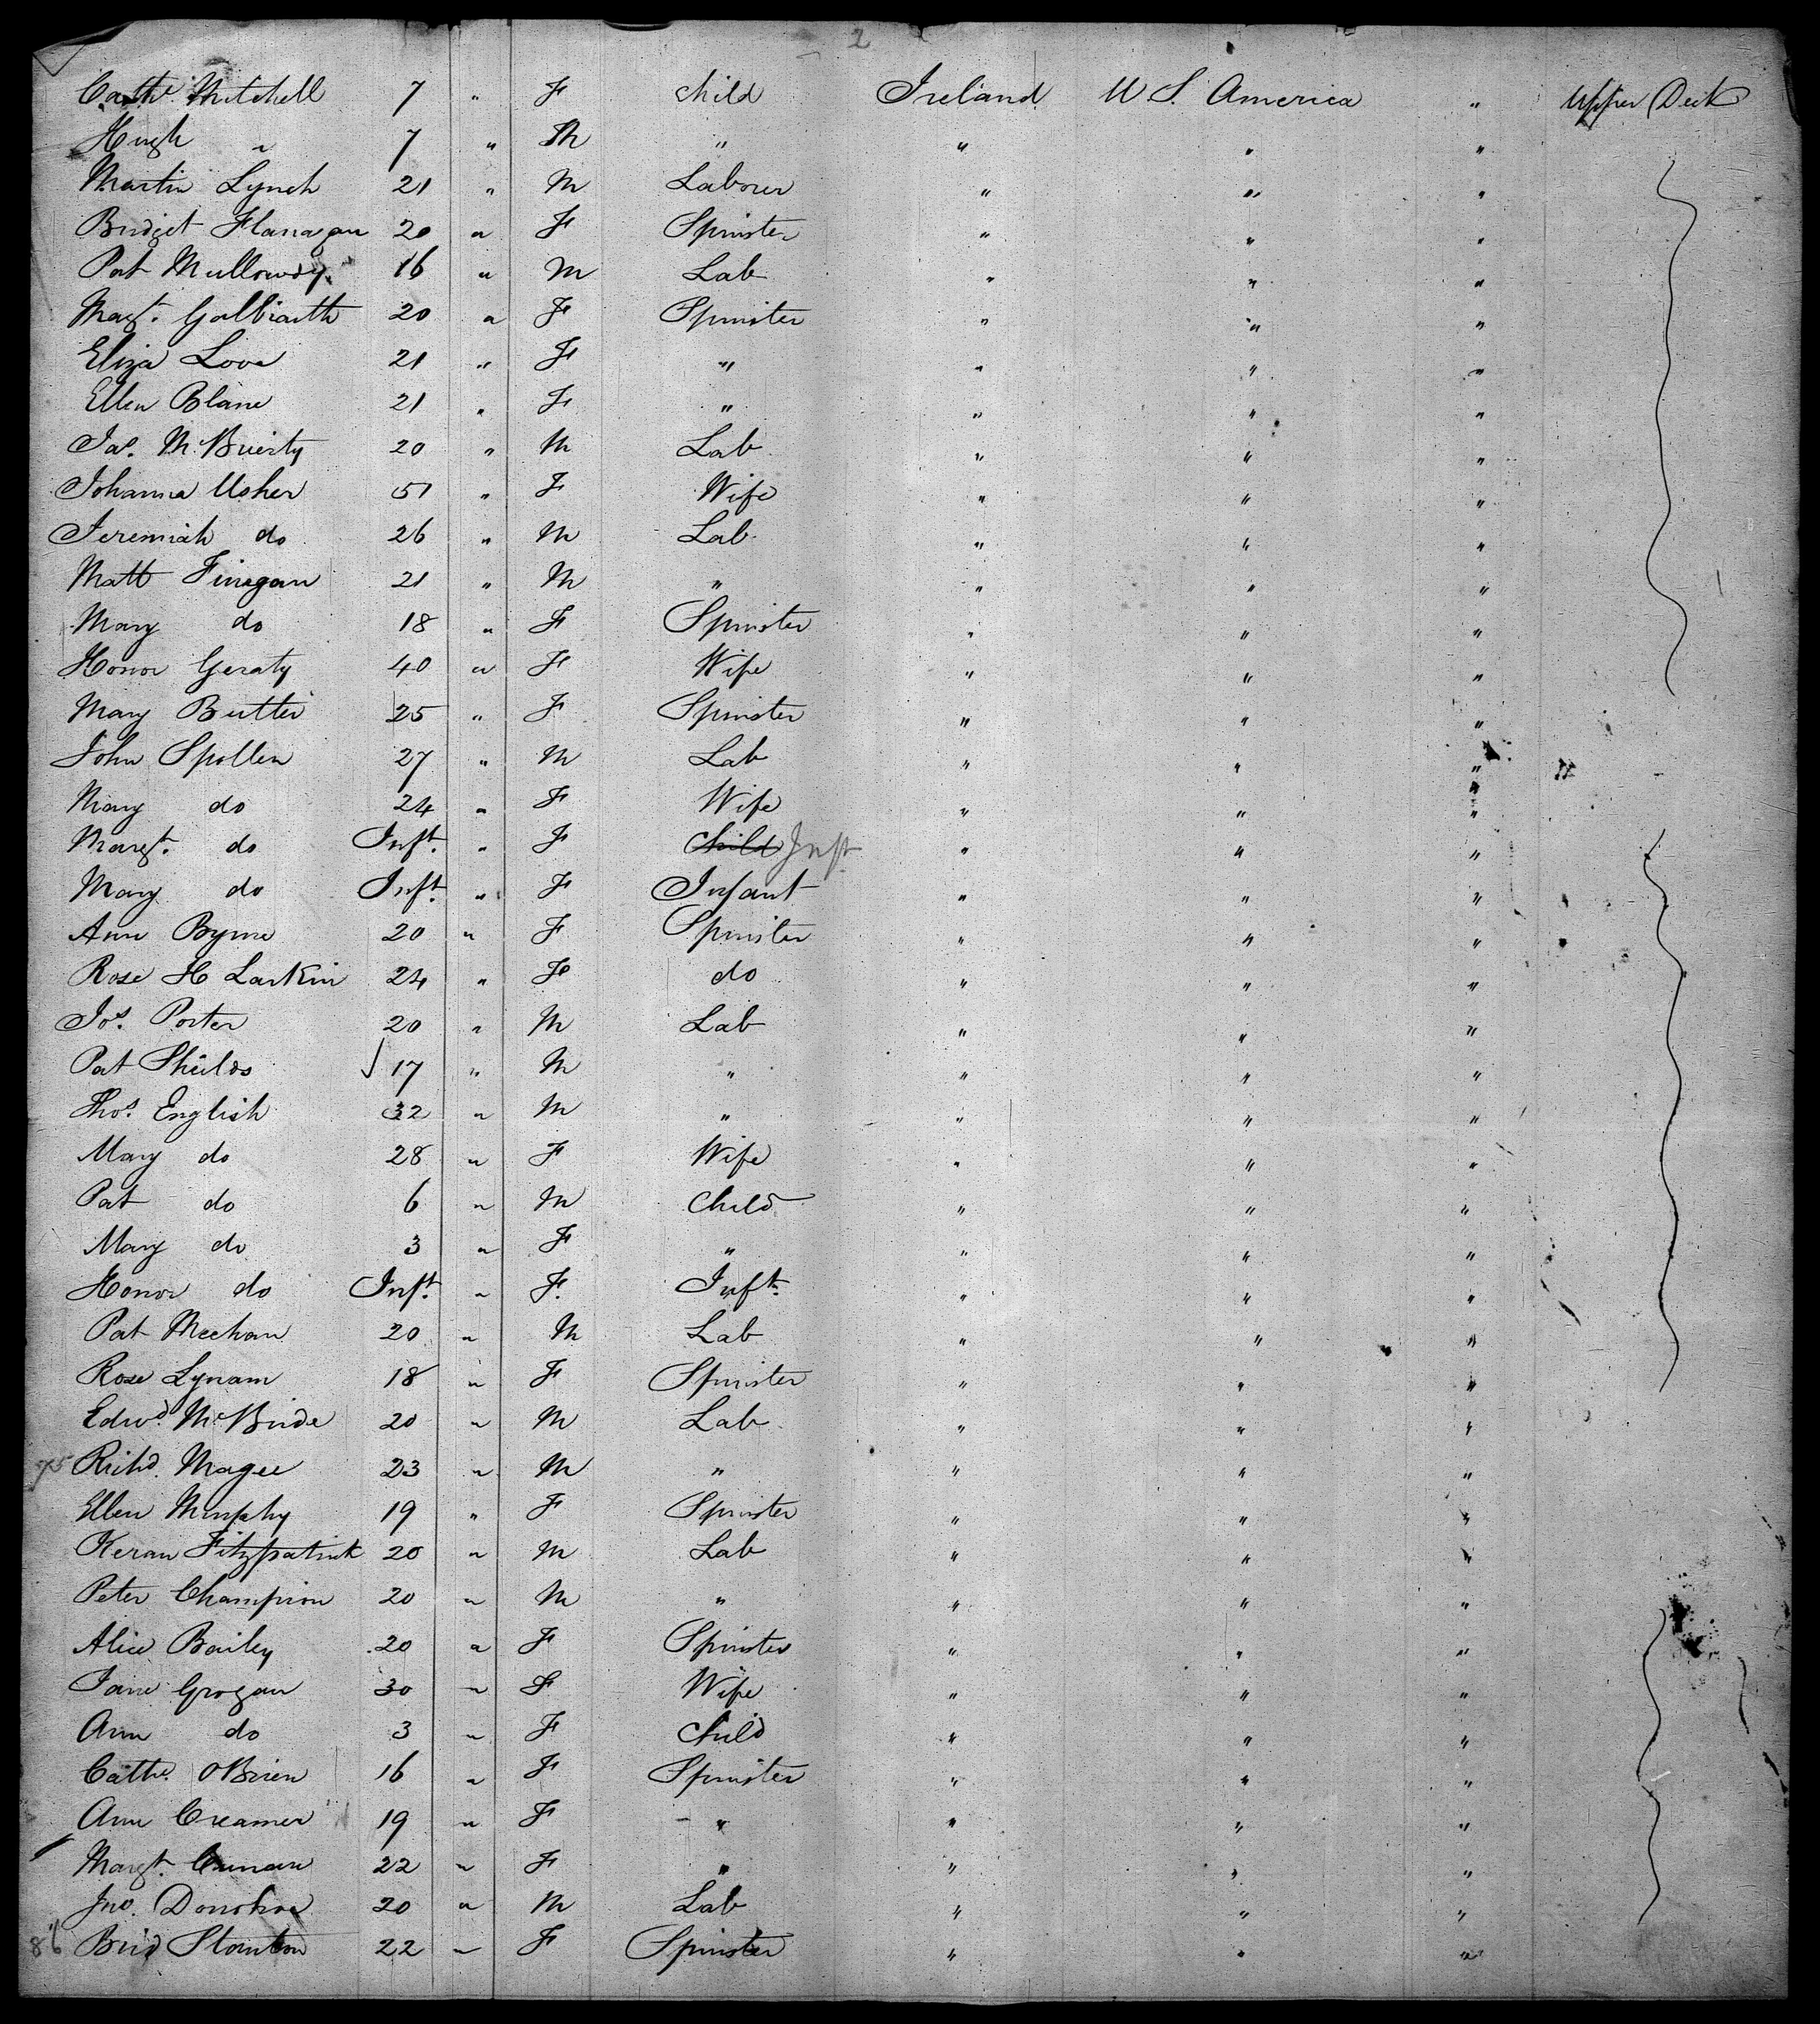 2
Cathe. Mitchell 7 " F child Ireland U S. America " Upper Deck
Hugh " 7 " M " " " "
Martin Lynch 21 " M Laborer " " "
Bridget Flanagan 20 " F Spinster " " "
Pat Mullowdy 16 " M Lab " " "
Magt. Galbraith 20 " F Spinster " " "
Eliza Love 21 " F " " " "
Ellen Blane 21 " F " " " "
Jas. McBrierty 20 " M Lab " " "
Johanna Usher 51 " F Wife " " "
Jeremiah do 26 " M Lab " " "
Matt Finegan 21 " M " " " "
Mary do 18 " F Spinster " " "
Honor Geraty 40 " F Wife " " "
Mary Butler 25 " F Spinster " " "
John Spollen 27 " M Lab " " " "
Mary do 24 " F Wife " " "
Margt. do Inft. " F Child Inft " " "
Mary do Inft. " F Infant " " "
Ann Byrne 20 " F Spinster " " "
Rose H Larkin 24 " F do " " "
Jos. Porter 20 " M Lab " " "
Pat Shields 17 " M " " " "
Thos. English 32 " M " " " "
Mary do 28 " F Wife " " "
Pat do 6 " M Child " " "
Mary do 3 " F " " " "
Honor do Inft. " F. Inft. " " "
Pat Meehan 20 " M Lab " " "
Rose Lynam 18 " F Spinster " " "
Edwd. McBride 20 " M Lab " " "
75 Richd. Magee 23 " M " " " "
Ellen Murphy 19 " F Spinster " " "
Keran Fitzpatrick 20 " M Lab " " "
Peter Champion 20 " M " " " "
Alice Bailey 20 " F Spinster " " "
Jane Grogan 30 " F Wife " " "
Ann do 3 " F Child " " "
Cathe. OBrien 16 " F Spinster " " "
Ann Creamer 19 " F " " " "
Margt. 22 " F " " " "
Jno. Donohoe 20 " M Lab " " "
86 Brid Stanton 22 " F Spinster " " "